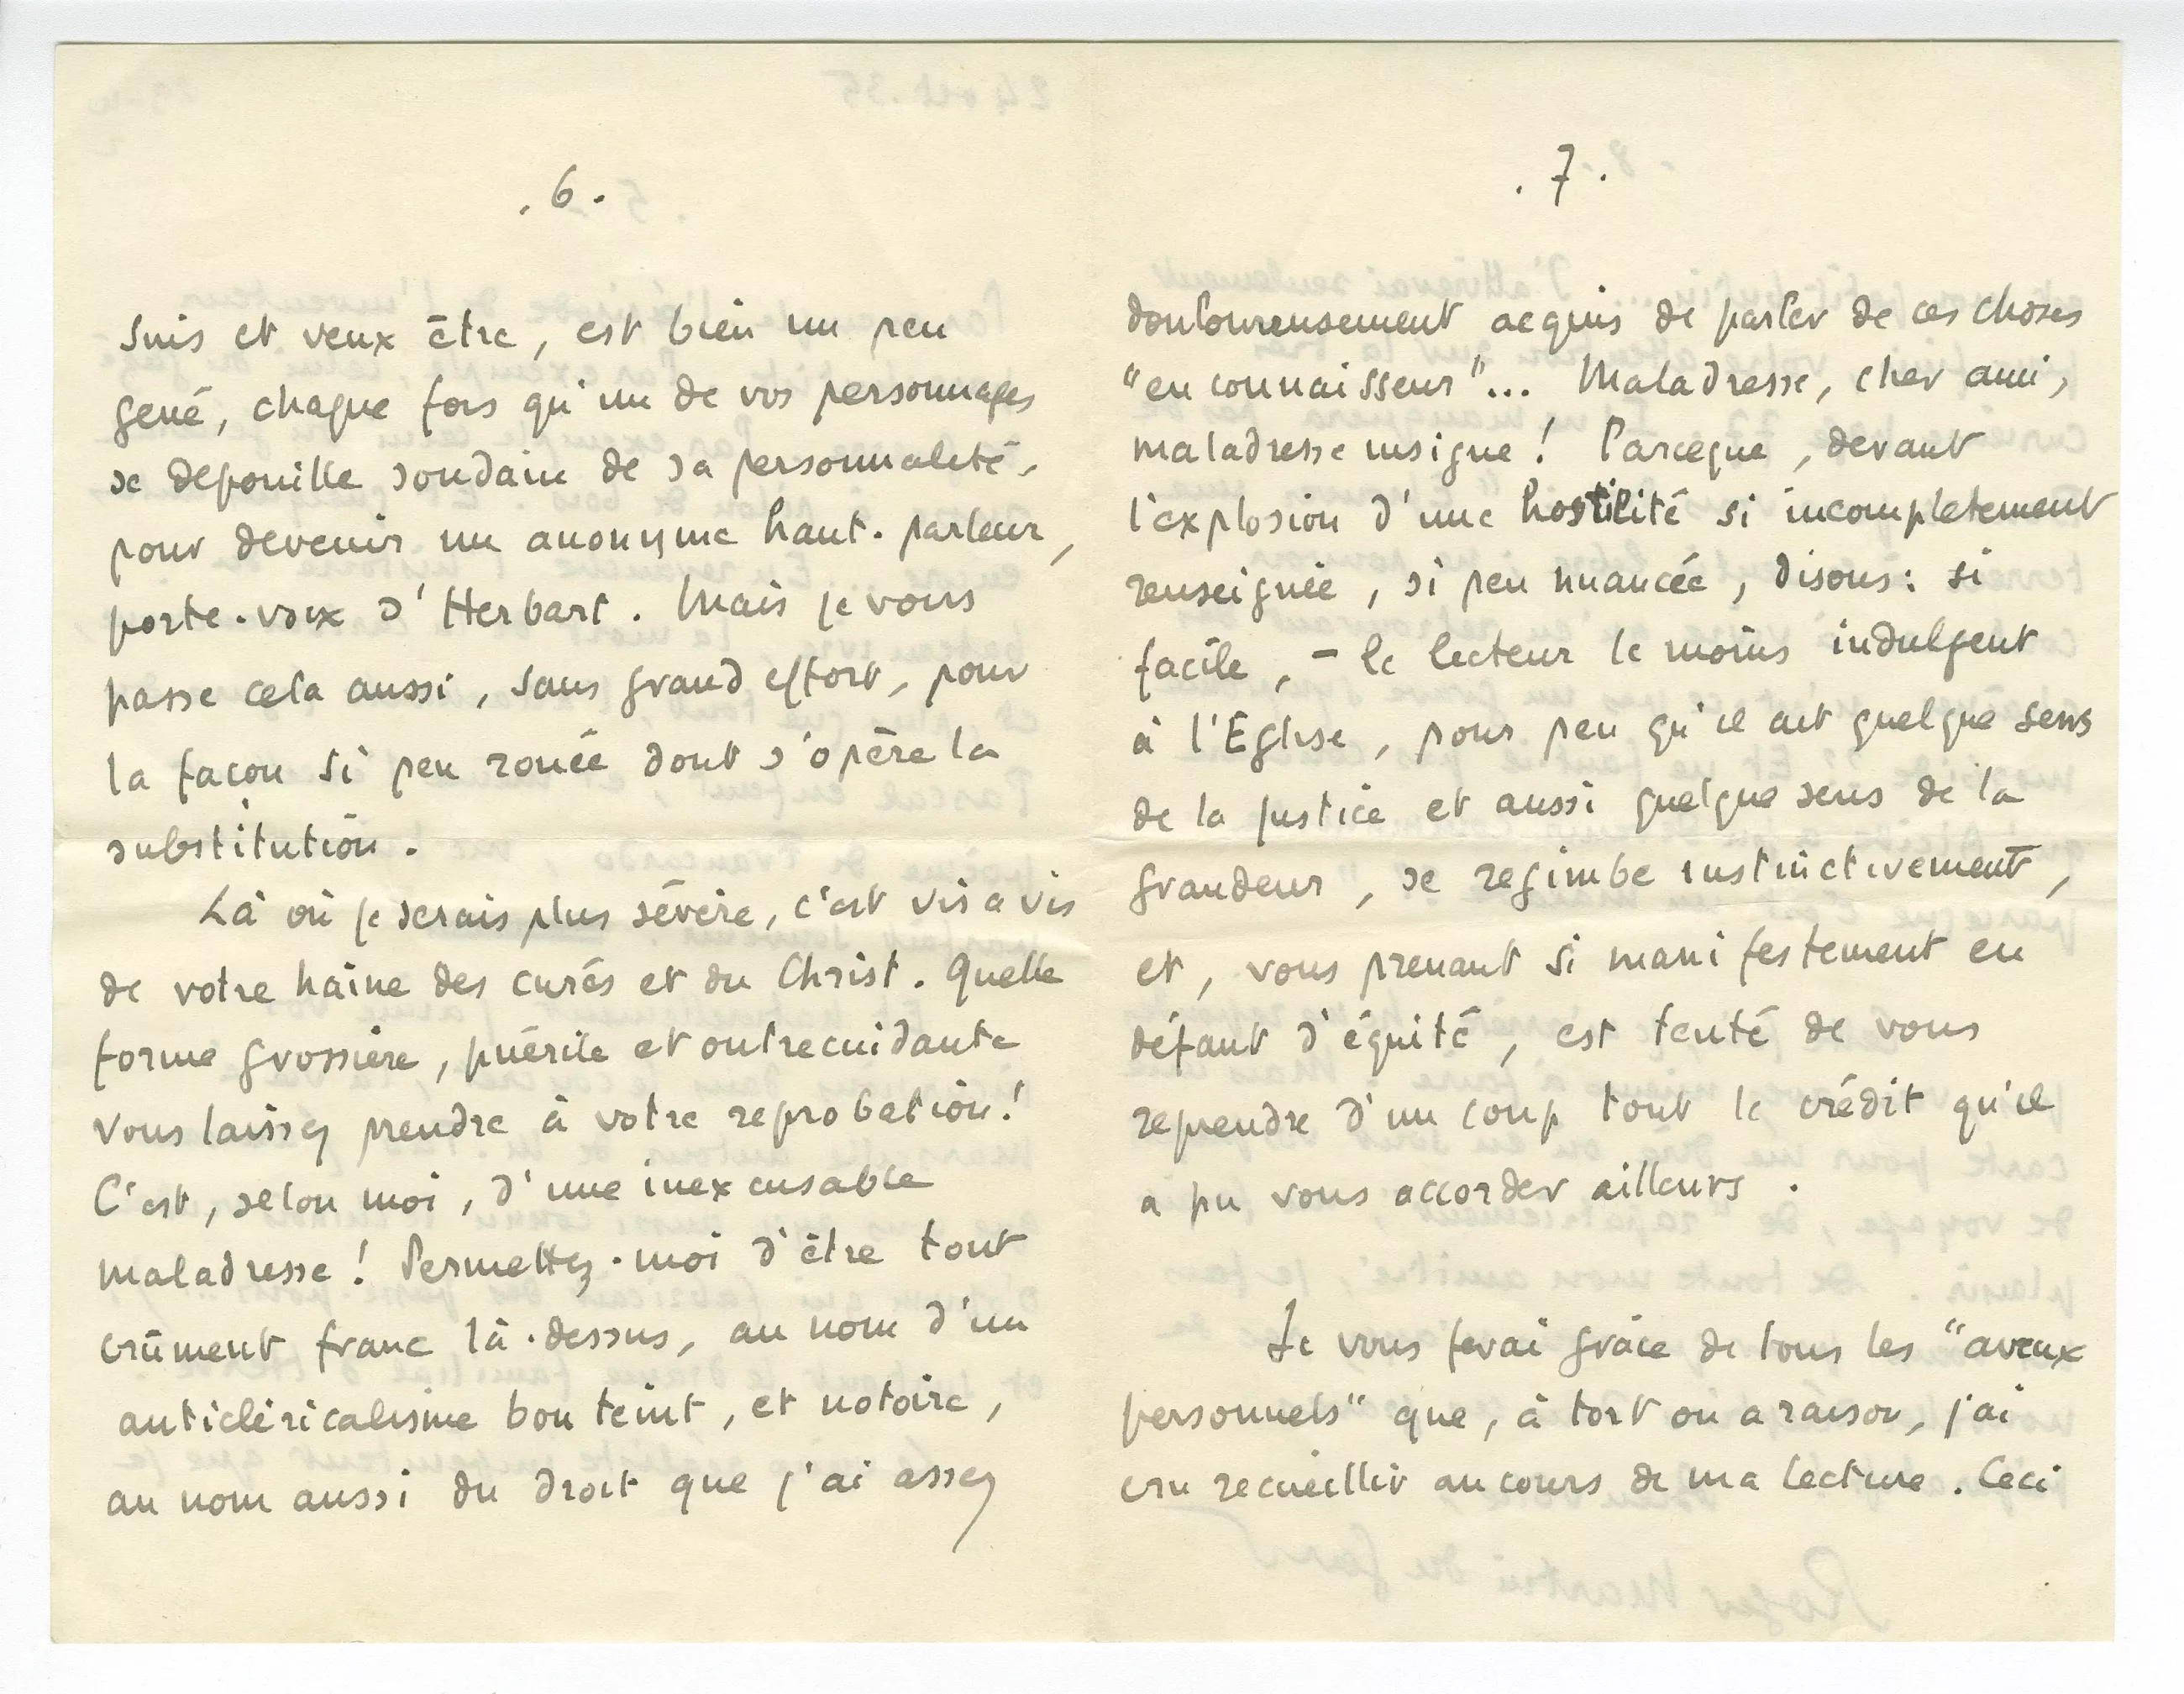 . 6 .
suis et veux être, est bien un peu
gené, chaque fois qu'un de vos personnages
se depouille soudain de sa personnalité,
pour devenir un anonyme haut-parleur,
porte-voix d'Herbart. Mais je vous
passe cela aussi, sans grand effort, pour
la façon si peu rouée dont s'opère la
substitution.
Là où je serais plus sévère, c'est vis a vis
de votre haine des curés et du Christ. Quelle
forme grossière, puérile et outrecuidante
vous laissez prendre à votre reprobation!
C'est, selon moi, d'une inexcusable
maladresse! Permettez-moi d'être tout
crûment franc là-dessus, au nom d'un
anticléricalisme bon teint, et notoire,
au nom aussi du droit que j'ai assez
. 7 .
douloureusement acquis de parler de ces choses
"en connaisseur"... Maladresse, cher ami,
maladresse insigne! Parceque, devant
l'explosion d'une hostilité si incompletement
renseignée, si peu nuancée, disons: si
facile, - le lecteur le moins indulgent
à l'Eglise, pour peu qu'il ait quelque sens
de la justice et aussi quelque sens de la
grandeur, se regimbe instinctivement,
et, vous prenant si manifestement en
défaut d'équité, est tenté de vous
reprendre d'un coup tout le crédit qu'il
a pu vous accorder ailleurs.
Je vous ferai grâce de tous les "aveux
personnels" que, à tort ou a raison, j'ai
cru recueillir au cours de ma lecture. Ceci